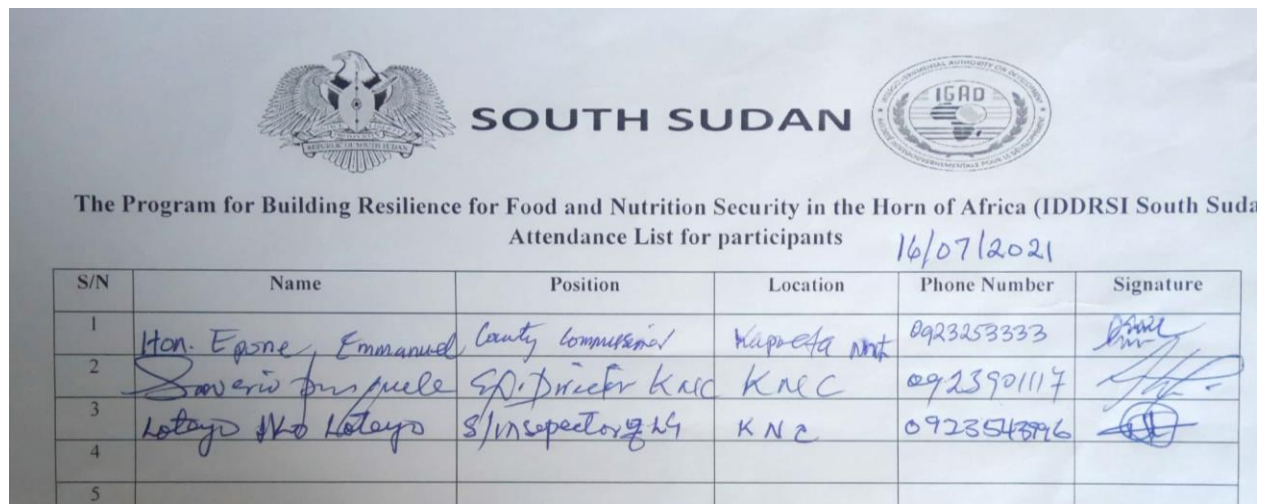 SOUTH SUDAN
IGAD
REPUBLIC OF SOUTH SUDAN
The Program for Building Resilience for Food and Nutrition Security in the Horn of Africa (IDDRSI South Suda
Attendance List for participants 16/07/2021
S/N Name Position Location Phone Number Signature
1 Hon. Epone, Emmanuel County Commissioner Kapoeta
2 Saverio Director KNC KNC 0923901117
3 Lotoyo Lotoyo S/Insepector of LG KNC
4
5
0923253333